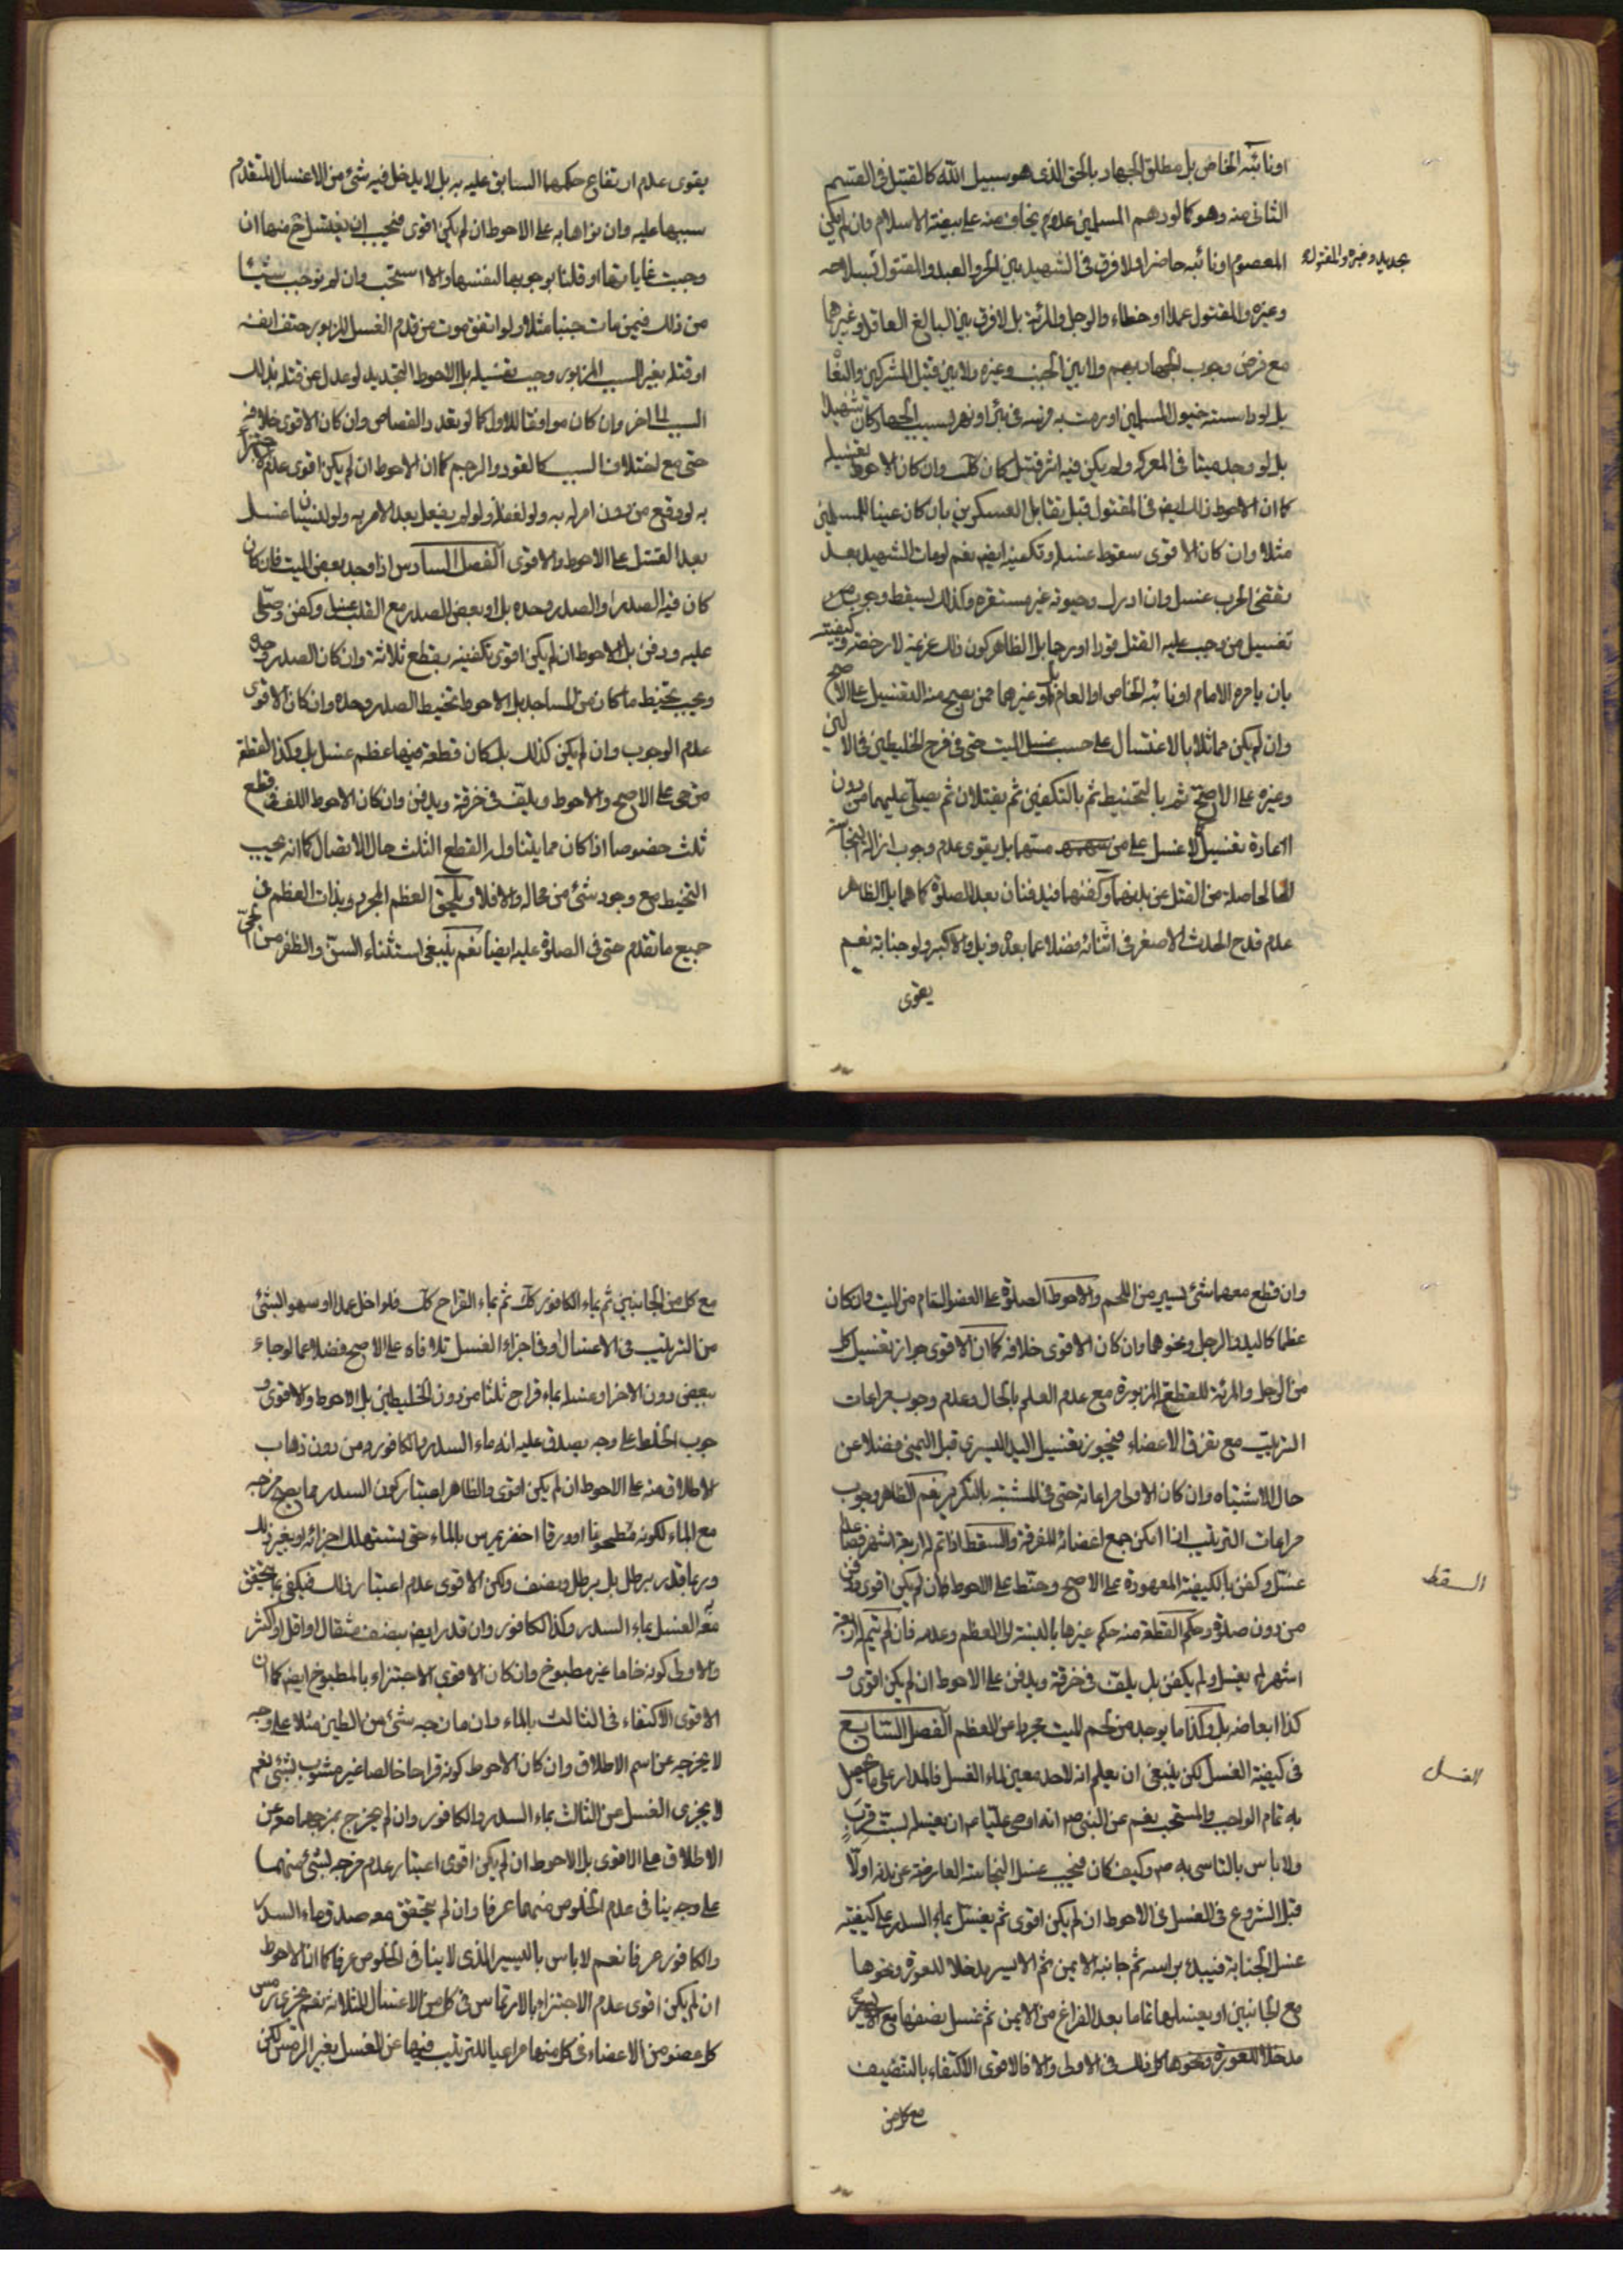 او نائبه الخاص بل مطلق الجهاد بالحق الذى هو سبيل الله كالقتل فى القسم
الثانى منه وهو كما لو دهم المسلمين عدو يخاف منه على بيضة الاسلام وان لم يكن
المعصوم او نائبه حاضرا و لا فرق فى الشهيد بين الحر والعبد والمقتول بسلاحه
بحديد وغيره والمقتول
وغيره والمقتول عمدا او خطاء والرجل والمرئة بل لا فرق بين البالغ العاقل وغيرهما
مع فرض وجوب الجهاد بهم ولا بين الجنب وغيره ولا بين قتيل المشركين والبغاة
بل لو داسته خيول المسلمين او رمت به فرسه فى بئر او نهر بسبب الجهاد كان شهيدا
بل لو وجد ميتا فى المعركه ولم يكن فيه اثر قتل كان كك وان كان الاحوط تغسيله
كما ان الاحوط ذلك ايضا فى المقتول قبل تقابل العسكرين بان كان عينا للمسلمين
مثلا وان كان الاقوى سقوط غسله وتكفينه ايضا نعم لو مات الشهيد بعد
تقضى الحرب غسل وان ادرك وحيوته غير مستقره وكذلك يسقط وجوب
تغسيل من وجب عليه القتل قودا او رجما بل الظاهر كون ذلك عزيمة لا رخصة وكيفيته
بان يامره الامام او نائبه الخاص او العام بل او غيرهما ممن يصح منه التغسيل على الاصح
وان لم يكن مماثلا بالاغتسال على حسب غسل الميت حتى فى طرح الخليطين فى الاولين
وغيره على الاصح ثم بالتحنيط ثم بالتكفين ثم يقتلان ثم يصلى عليهما من دون
اعادة تغسيل ولا غسل على من مسهما بل يقوى عدم وجوب ازالة النجاسة
الحاصلة من القتل عن بدنهما وكفنهما فيدفنان بعد الصلوة كما هما بل الظاهر
عدم قدح الحدث الاصغر فى اثنائه فضلا عما بعده و قبل والاكبر ولو جنابة نعم
يقوى
يقوى عدم ارتفاع حكمها السابق عليه به بل لا يدخل فيه شئ من الاغسال المتقدم
سببها عليه وان نواها به على الاحوط ان لم يكن اقوى فيجب ان يغتسل ح منها ان
وجبت غاياتها او قلنا بوجوبها لنفسها والا استحب وان لم نوجب شيئا
من ذلك فيمن مات جنبا مثلا ولو اتفق موت من قدم الغسل المزبور حتف انفه
او قتله بغير السبب المزبور وجب تغسيله بل الاحوط التجديد لو عدل عن قتله بذلك
السبب الى اخر وان كان موافقا للاول كما لو تعدد القصاص وان كان الاقوى خلافه
حتى مع اختلاف السبب كالقود والرجم كما ان الاحوط ان لم يكن اقوى عدم الاجتزاء
به لو وقع من دون امر له به ولو لغفلة ولو لم يفعل بعد الامر به ولو لنسيان غسل
بعد القتل على الاحوط والاقوى الفصل السادس اذا وجد بعض الميت فان كان
كان فيه الصدر او الصدر وحده بل او بعض الصدر مع القلب غسل وكفن وصلى
عليه ودفن بل الاحوط ان لم يكن اقوى تكفينه بقطع ثلاثة وان كان الصدر وحده
ويجب تحنيط ما كان من المساجد بل الاحوط تحنيط الصدر وحده وان كان الاقوى
عدم الوجوب وان لم يكن كذلك بل كان قطعة فيها عظم غسل بل وكذا القطعة
من حى على الاصح والاحوط ويلف فى خرقة ويدفن وان كان الاحوط اللف فى قطع
ثلث خصوصا اذا كان مما يتناوله القطع الثلث حال الاتصال كما انه يجب
التحنيط مع وجود شئ من محاله والا فلا ويلحق العظم المجرد وبذات العظم فى
جميع ما تقدم حتى فى الصلوة عليه ايضا نعم ينبغى استثناء السن والظفر من الحى
وان قطع معهما شئ يسير من اللحم والاحوط الصلوة على العضو التام من الميت وان كان
عظما كاليد والرجل ونحوهما وان كان الاقوى خلافه كما ان الاقوى جواز تغسيل كل
من الرجل والمرئة للقطعة المزبورة مع عدم العلم بالحال وعدم وجوب مراعات
الترتيب مع تفرق الاعضاء فيجوز تغسيل اليد اليسرى قبل اليمنى فضلا عن
حال الاشتباه وان كان الاولى مراعاته حتى فى المشتبه بالتكرير نعم الظاهر وجوب
مراعات الترتيب اذا امكن جمع اعضائه المفرقة والسقط اذا تم له اربعة اشهر فصاعدا
السقط
غسل وكفن بالكيفية المعهودة على الاصح وحنط على الاحوط ان لم يكن اقوى ودفن
من دون صلوة وحكم القطعة منه حكم غيرها بالنسبة الى العظم وعدمه فان لم تتم له اربعة
اشهر لم يغسل ولم يكفن بل يلف فى خرقة ويدفن على الاحوط ان لم يكن اقوى و
كذا ابعاضه بل وكذا ما يوجد من لحم الميت مجردا عن العظم الفصل السابع
فى كيفية الغسل لكن ينبغى ان يعلم انه لا حد معين لماء الغسل فالمدار على ما يحصل
الغسل
به تمام الواجب والمستحب نعم عن النبى ص انه اوصى عليا ع ان يغسله بست قرب
ولا باس بالتاسى به ص وكيف كان فيجب غسل النجاسة العارضة عن بدنه اولا
قبل الشروع فى الغسل فى الاحوط ان لم يكن اقوى ثم يغسل بماء السدر على كيفية
غسل الجنابة فيبدء براسه ثم جانبه الايمن ثم الايسر مدخلا للعورة ونحوها
مع الجانبين او يغسلها تماما بعد الفراغ من الايمن ثم غسل نصفها مع الايسر
مدخلا للعورة ونحوها كل ذلك فى الاولى والا فالاقوى الاكتفاء بالتنصيف
مع كل من
مع كل من الجانبين ثم بماء الكافور كك ثم بماء القراح كك فلو اخل عمدا او سهوا بشئ
من الترتيب فى الاغسال او فى اجزاء الغسل تلافاه على الاصح فضلا عما لو جاء
ببعض دون الاخر او غسله بماء قراح ثلثا من دون الخليطين بل الاحوط والاقوى و
جوب الخلط على وجه يصدق عليه انه ماء السدر والكافور ومن دون ذهاب
الاطلاق منه على الاحوط ان لم يكن اقوى والظاهر اعتبار كون السدر مما يصح مزجه
مع الماء لكونه مطحونا او ورقا اخضر يمرس بالماء حتى يستهلك اجزائه او بغير ذلك
وربما قدر برطل بل برطل ونصف ولكن الاقوى عدم اعتبار ذلك فيكفى ما يتحقق
معه الغسل بماء السدر وكذا الكافور وان قدر ايضا بنصف مثقال او اقل او اكثر
والاولى كونه خاما غير مطبوخ وان كان الاقوى الاجتزاء بالمطبوخ ايضا كما ان
الاقوى الاكتفاء فى الثالث بالماء وان مازجه شئ من الطين مثلا على وجه
لا يخرجه عن اسم الاطلاق وان كان الاحوط كونه قراحا خالصا غير مشوب بشئ نعم
لا يجزى الغسل من الثالث بماء السدر والكافور وان لم يخرج بمزجهما عن
الاطلاق على الاقوى بل الاحوط ان لم يكن اقوى اعتبار عدم مزجه بشئ منهما
على وجه ينافى عدم الخلوص منهما عرفا وان لم يتحقق معه صدق ماء السدر
والكافور عرفا نعم لا باس باليسير الذى لا ينافى الخلوص عرفا كما ان الاحوط
ان لم يكن اقوى عدم الاجتزاء بالارتماس فى كل من الاغسال الثلاثة نعم يجزى رمس
كل عضو من الاعضاء فى كل منها مراعيا للترتيب فيها عن الغسل بغير الرمس لكن